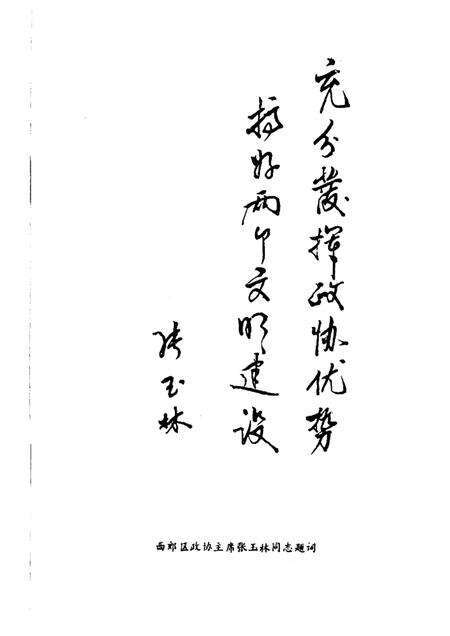 充分發挥政协优势
搞好两个文明建设
张玉林
西郊区政协主席张玉林同志题词